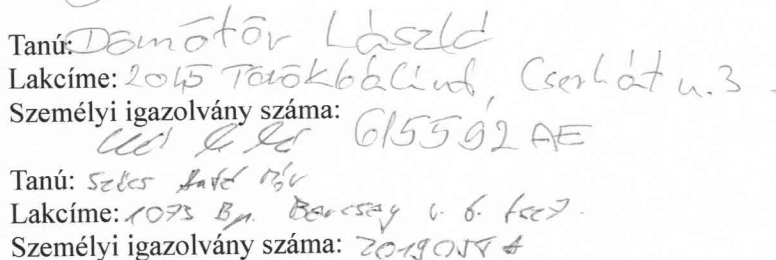 Tanú: Dömötör László
Lakcíme: 2045 Törökbálint, Cserhát u. 3.
Személyi igazolvány száma:
615592 AE
Tanú: Szűcs Mór
Lakcíme: 1073 Bp. Barcsay u. 6.
Személyi igazolvány száma: